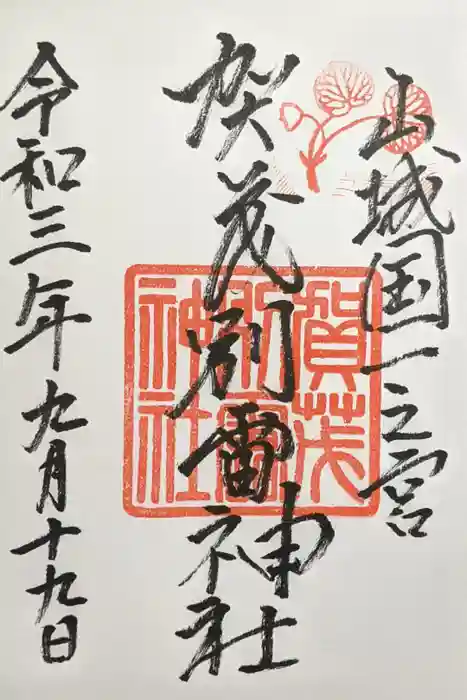 山城国一之宮
賀茂別雷神社
令和三年九月十九日
賀茂
別雷
神社